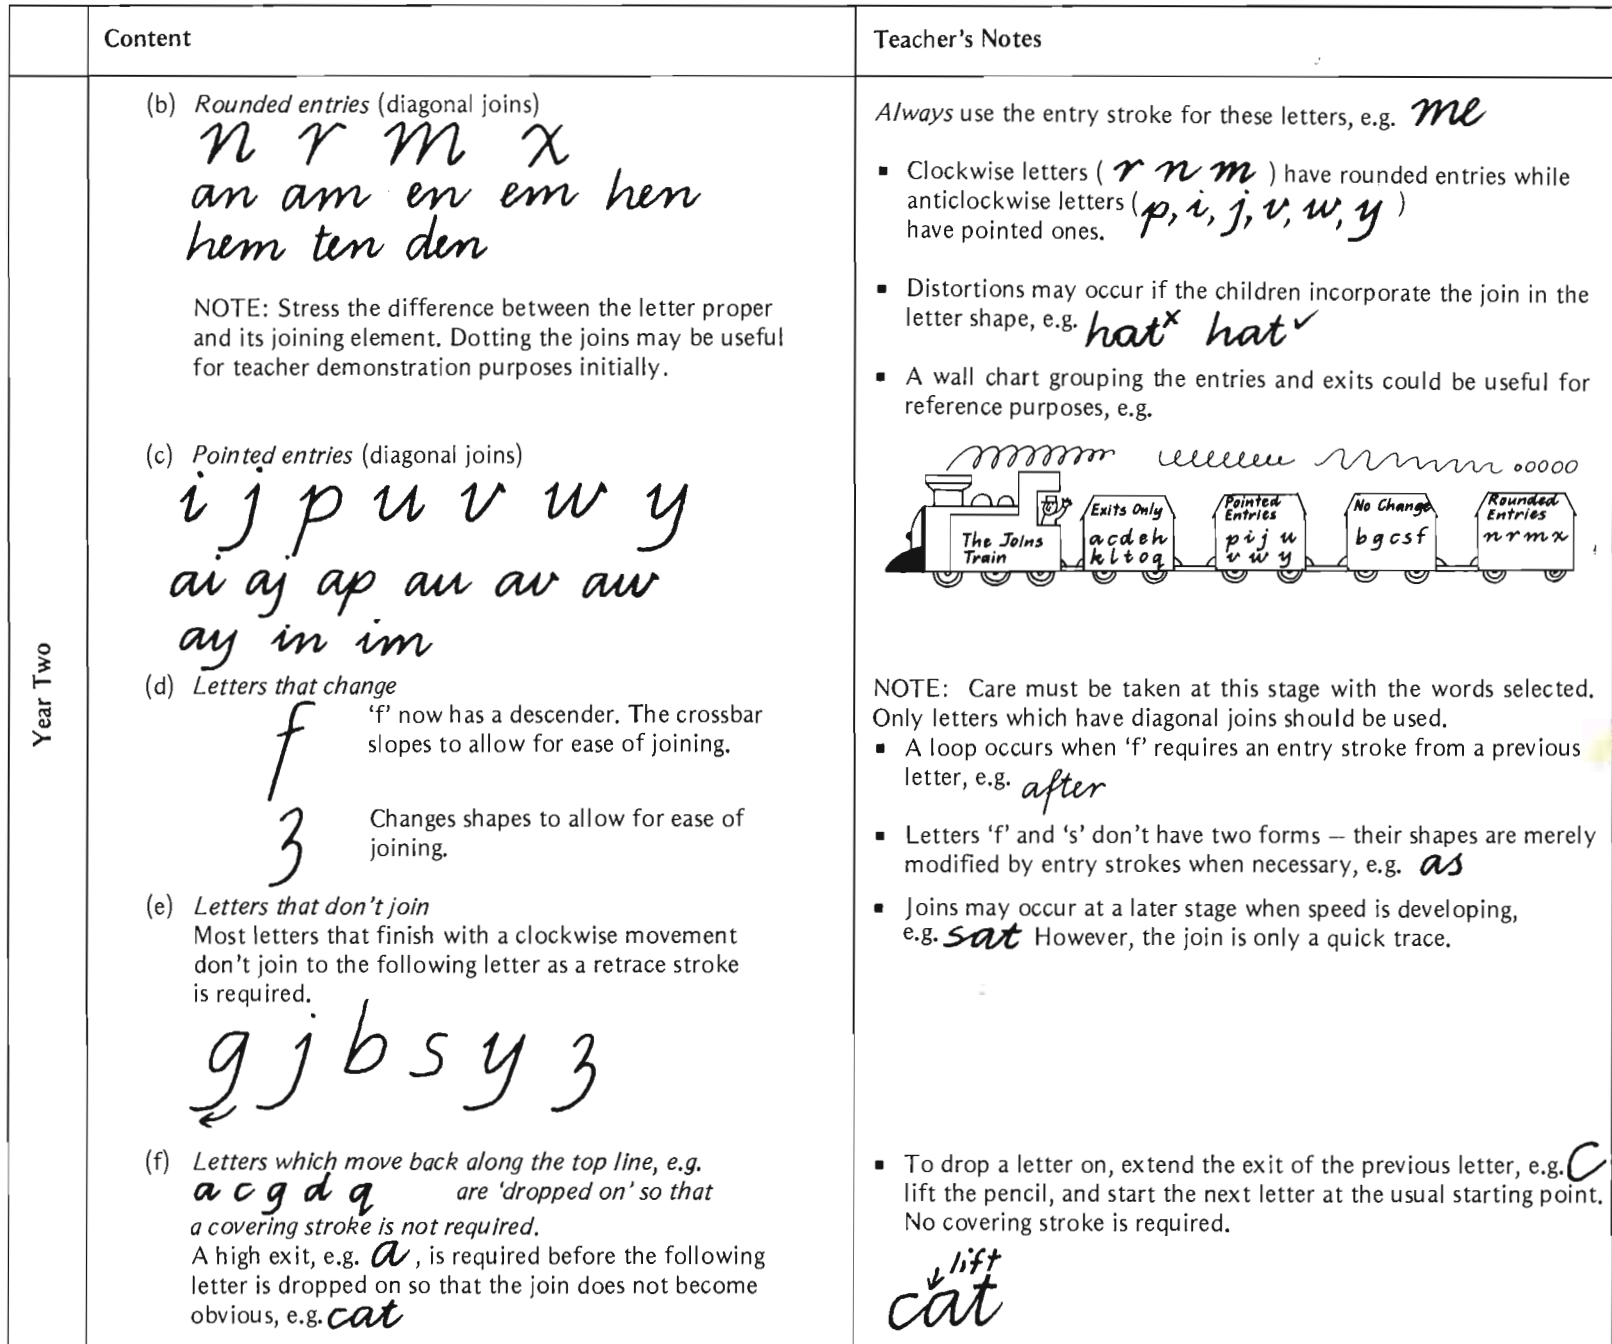 Content
Teacher's Notes
Year Two
(b) Rounded entries (diagonal joins)
n r m x
an am en em hen
hem ten den
NOTE: Stress the difference between the letter proper
and its joining element. Dotting the joins may be useful
for teacher demonstration purposes initially.
(c) Pointed entries (diagonal joins)
i j p u v w y
ai aj ap au av aw
ay in im
(d) Letters that change
f
'f' now has a descender. The crossbar
slopes to allow for ease of joining.
z
Changes shapes to allow for ease of
joining.
(e) Letters that don't join
Most letters that finish with a clockwise movement
don't join to the following letter as a retrace stroke
is required.
g j b s y z
(f) Letters which move back along the top line, e.g.
a c g d q are 'dropped on' so that
a covering stroke is not required.
A high exit, e.g. a, is required before the following
letter is dropped on so that the join does not become
obvious, e.g. cat
Always use the entry stroke for these letters, e.g. me
▪ Clockwise letters ( r n m ) have rounded entries while
anticlockwise letters ( p, i, j, v, w, y )
have pointed ones.
▪ Distortions may occur if the children incorporate the join in the
letter shape, e.g. hat x hat ✓
▪ A wall chart grouping the entries and exits could be useful for
reference purposes, e.g.
The Joins
Train
Exits Only
a c d e h
k l t o q
Pointed
Entries
p i j u
v w y
No Change
b g c s f
Rounded
Entries
n r m x
NOTE: Care must be taken at this stage with the words selected.
Only letters which have diagonal joins should be used.
▪ A loop occurs when 'f' requires an entry stroke from a previous
letter, e.g. after
▪ Letters 'f' and 's' don't have two forms – their shapes are merely
modified by entry strokes when necessary, e.g. as
▪ Joins may occur at a later stage when speed is developing,
e.g. sat However, the join is only a quick trace.
▪ To drop a letter on, extend the exit of the previous letter, e.g. c
lift the pencil, and start the next letter at the usual starting point.
No covering stroke is required.
lift
cat